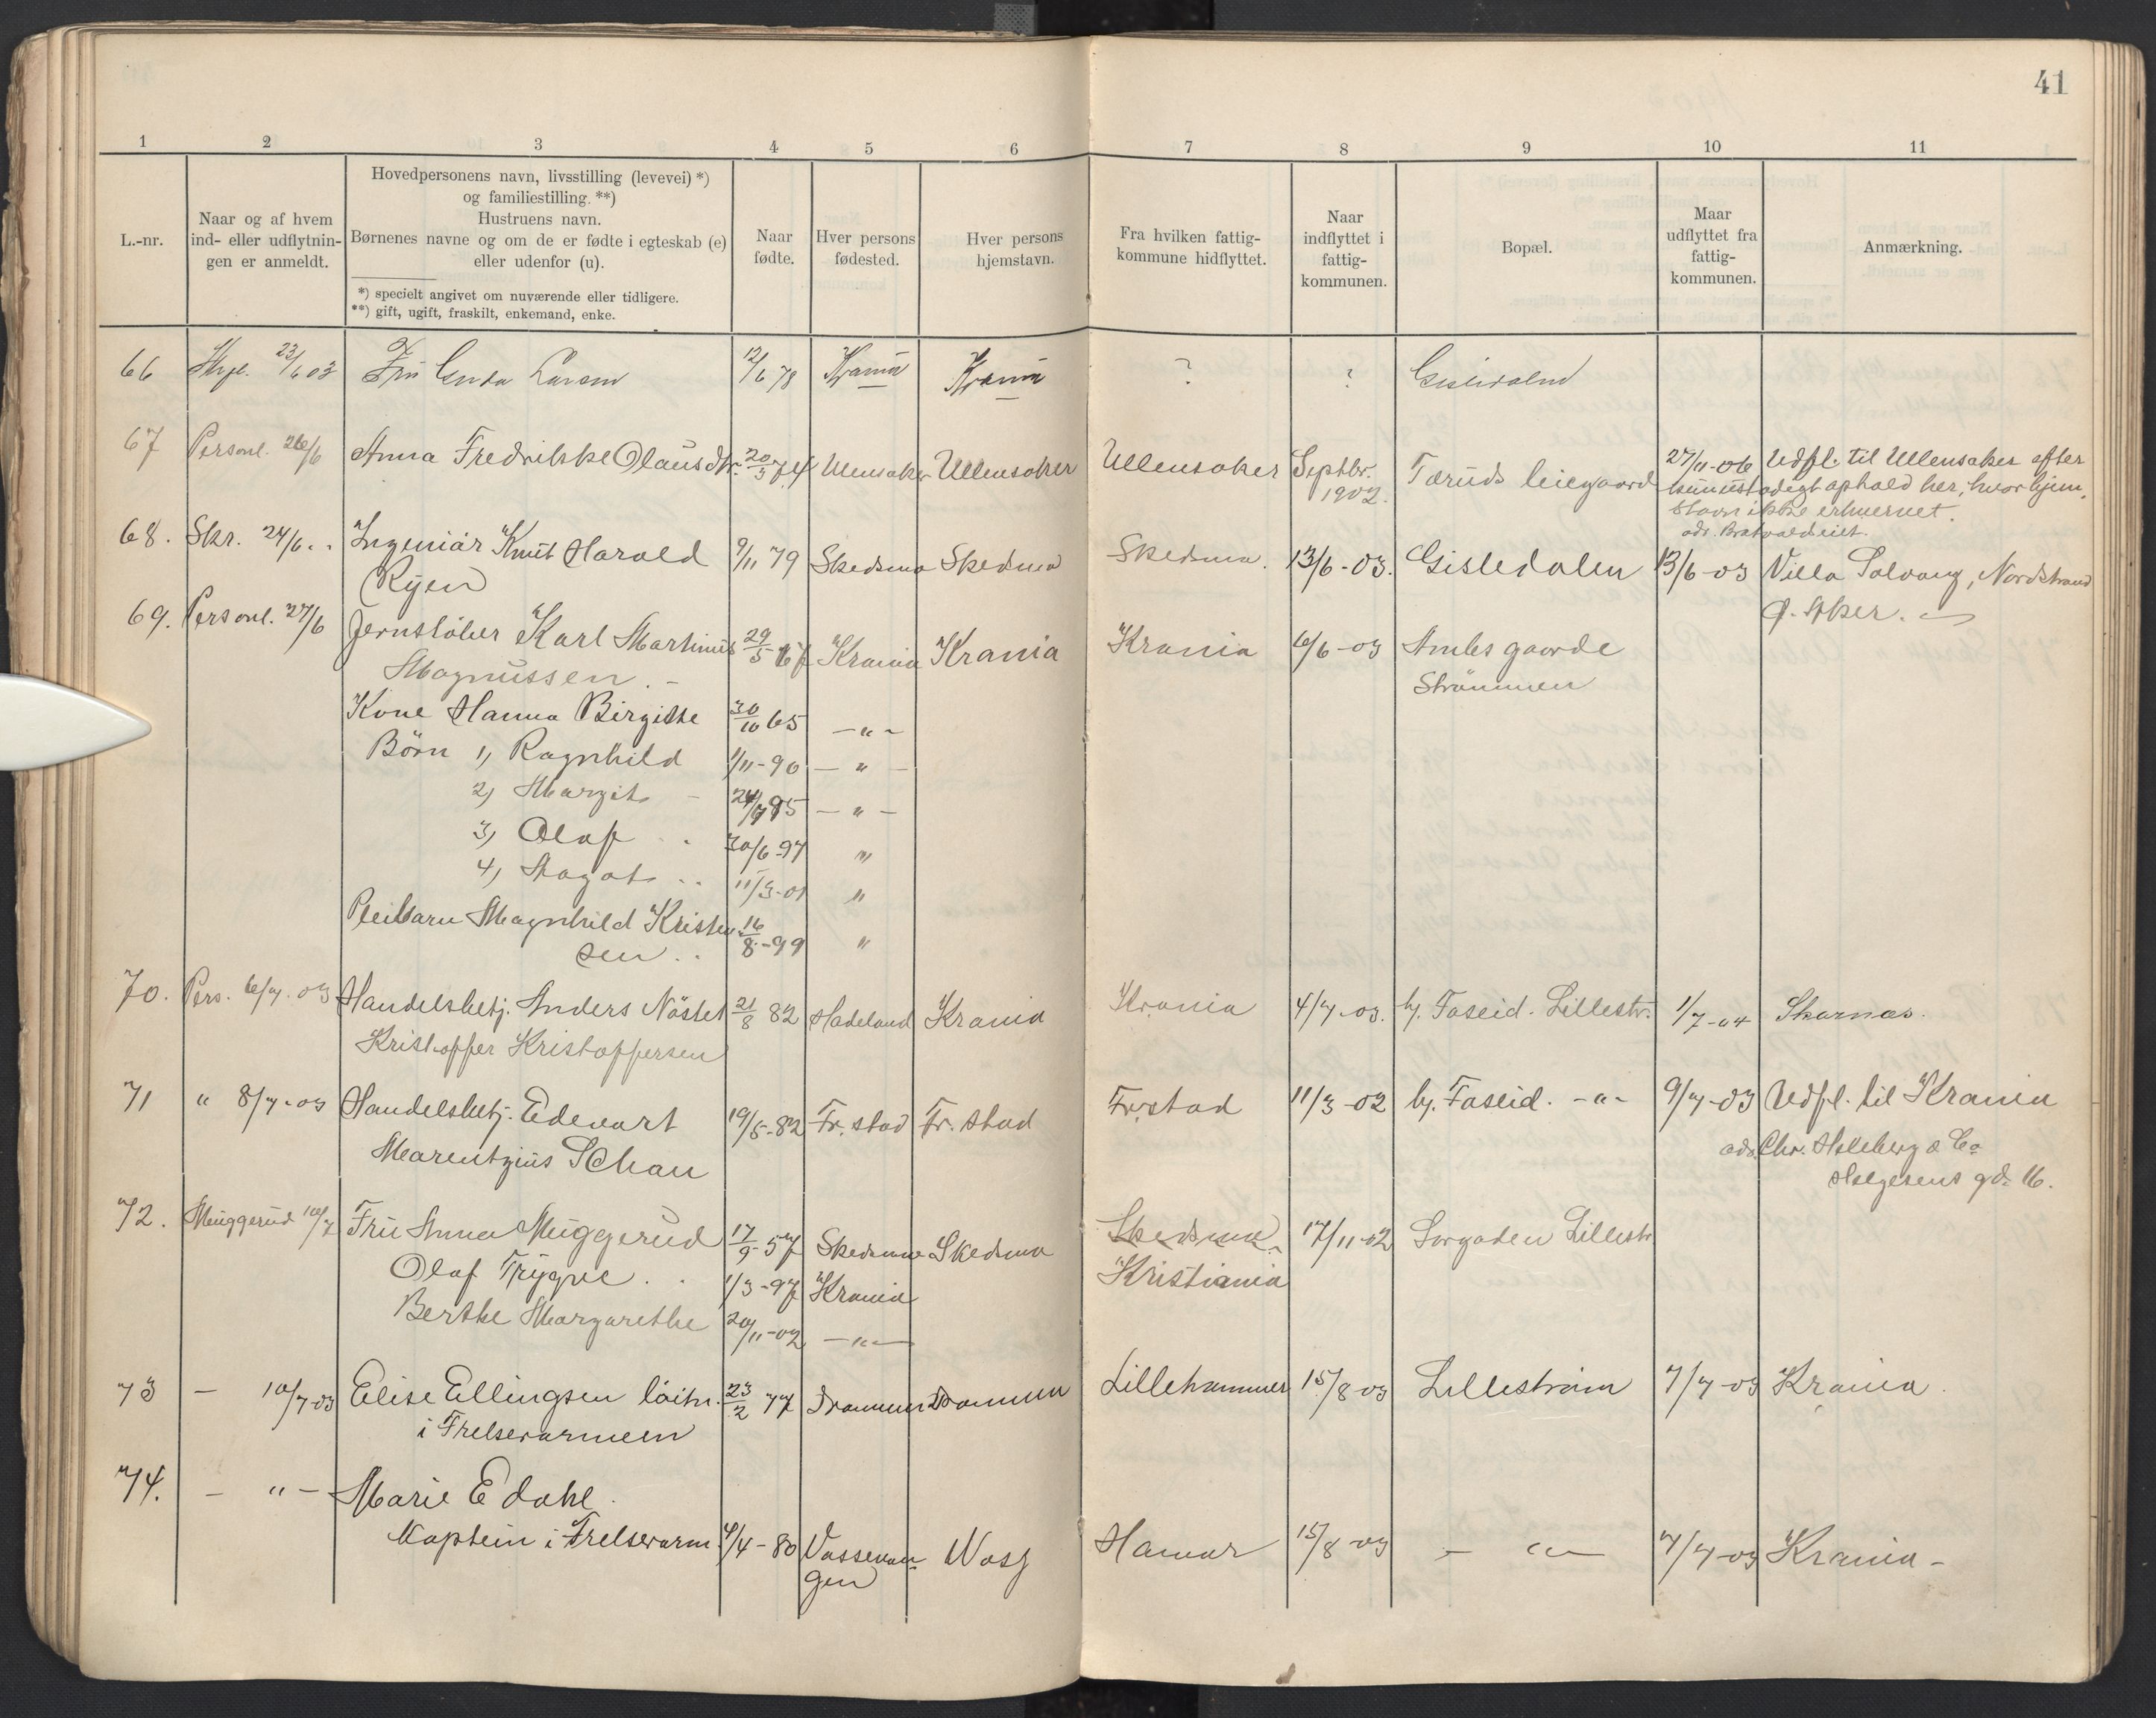 41
1 2 3 4 5 6 7 8 9 10 11
L.-nr.
Naar og af hvem
ind- eller udflytnin-
gen er anmeldt.
Hovedpersonens navn, livsstilling (levevei) *)
og familiestilling. **)
Hustruens navn.
Børnenes navne og om de er fødte i egteskab (e)
eller udenfor (u).
*) specielt angivet om nuværende eller tidligere.
**) gift, ugift, fraskilt, enkemand, enke.
Naar
fødte.
Hver persons
fødested.
Hver persons
hjemstavn.
Fra hvilken fattig-
kommune hidflyttet.
Naar
indflyttet i
fattig-
kommunen.
Bopæl.
Maar
udflyttet fra
fattig-
kommunen.
Anmærkning.
66 23/6 03 Larsen 12/6 78 Krania Krania ? ?
67 Personl. 26/6 Anna Fredrikke Olausdtr. 20/3 74 Ullensaker Ullensaker Ullensaker Septbr. Tæruds leiegaard 27/11-06 Udfl. til Ullensaker efter
1902. ophold her, hvor hjem-
stavn ikke erhvervet.
68. Skr. 24/6 „ Ingeniør Knut Harald 9/11 79 Skedsmo Skedsmo Skedsmo. 13/6-03. Gisledalen 13/6-03 Villa Solvang, Nordstrand
Ryen Ø. Aker.
69. Personl. 27/6 Jernstøber Karl Martinus 29/5 67 Krania Krania Krania 6/6-03 gaarde
Magnussen. Strømmen
Kone Hanna Birgitte 30/10 65 — „ —
Børn 1) Ragnhild 1/11-90 — „ —
2) Margit — „ —
3) Olaf 30/6-97 „
4) Aagot 11/3-01 „
Pleibarn Magnhild Kristen- 16/8-99 „
sen
70. Pers. 6/7.03 Handelsbetj. Anders Nøstet 21/8 82 Hadeland Krania Krania 4/7-03. hj. Faseid. Lillestr. 1/7-04 Skarnæs.
Kristoffer Kristoffersen
71 „ 8/7-03 Handelsbetj. Edevart 19/5-82 Fr.stad Fr.stad Fr.stad 11/3-02 hj. Faseid. — „ — 9/7-03 Udfl. til Krania
Marentzius Schau adr. Chr. Holeberg & Co
Holgersens gd. 16.
72. Muggerud 10/7 Fru Anna Muggerud 17/9 57 Skedsmo Skedsmo Skedsmo 17/11-02 Sørgaden Lillestr
Olaf Trygve 1/3-97 Krania Kristiania
Berthe Margarethe 20/11-02 — „ —
73 — 10/7-03 Elise Ellingsen løitn. 23/2 77 Drammen Drammen Lillehammer 15/8-03 Lillestrøm 7/7-03 Krania
i Frelserarmeen
74. — „ — Marie E dahl.
Kaptein i Frelserarm. 4/4-80 Vossevan- Hamar 15/8-03 — „ — 7/7-03 Krania —
gen